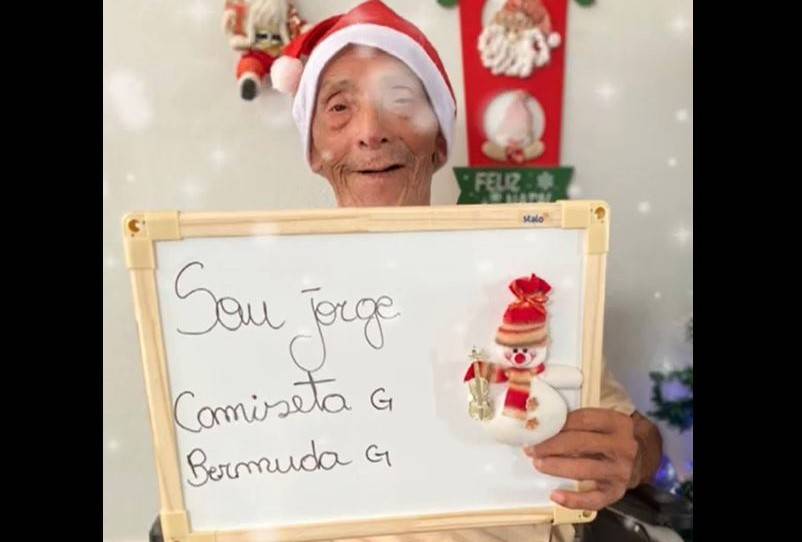 FELIZ
NATAL
stalo
Sou jorge
Camiseta G
Bermuda G